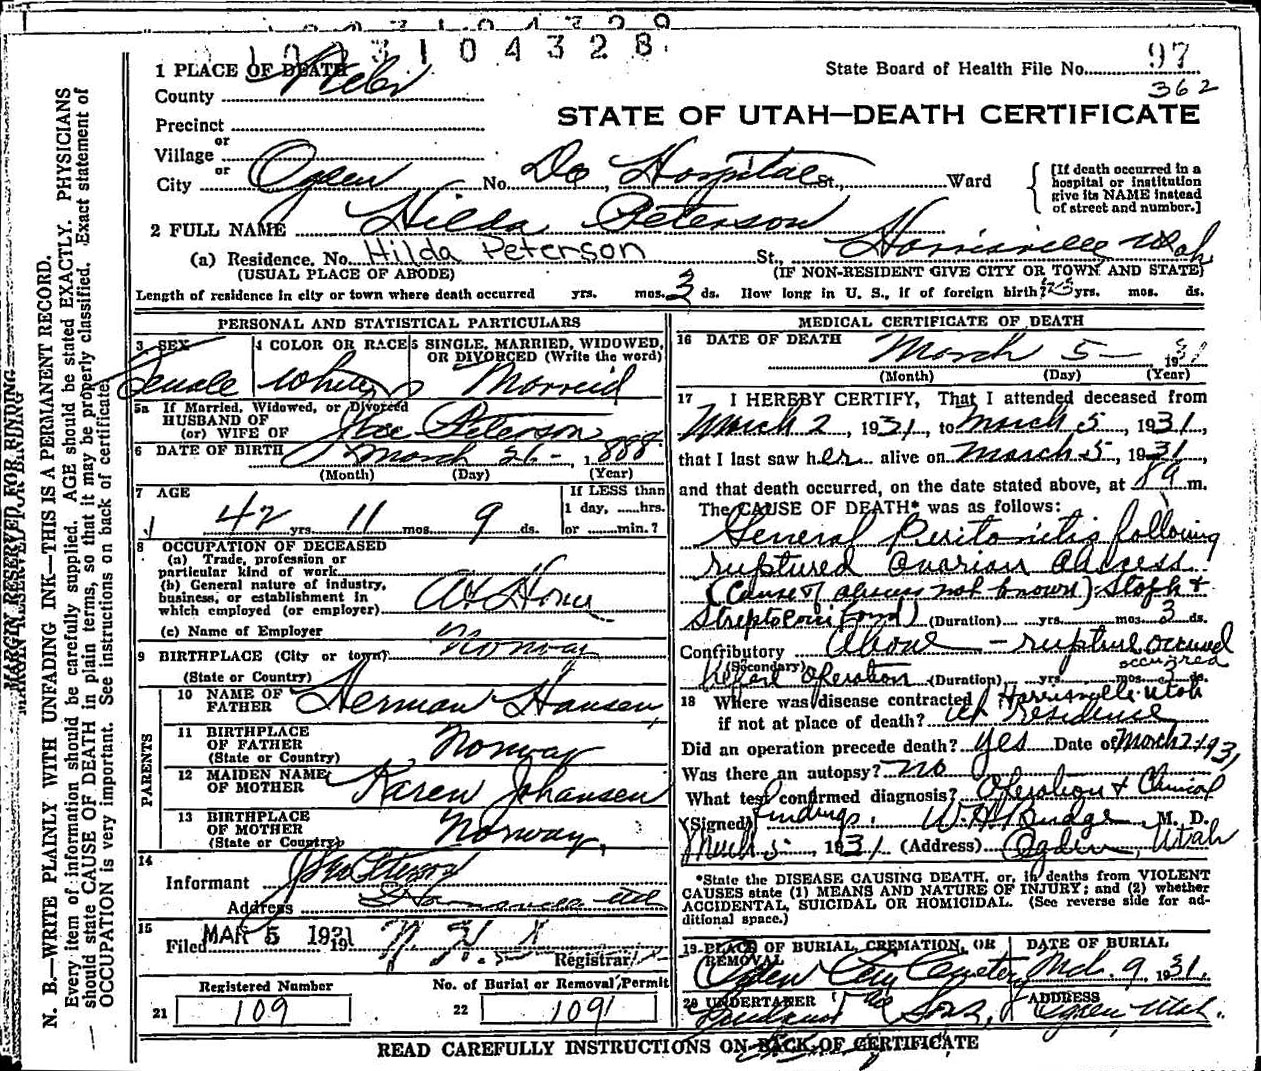 1 0 0 3 1 0 4 3 2 8
1 PLACE OF DEATH
State Board of Health File No. 97
362
County Weber
STATE OF UTAH—DEATH CERTIFICATE
Precinct
or
Village
or
City Ogden No. Dee Hospital St., Ward
[If death occurred in a
hospital or institution
give its NAME instead
of street and number.]
2 FULL NAME Hilda Peterson
(a) Residence. No. Hilda Peterson St., Harrisville Utah
(USUAL PLACE OF ABODE) (IF NON-RESIDENT GIVE CITY OR TOWN AND STATE)
Length of residence in city or town where death occurred yrs. mos. 3 ds. How long in U. S., if of foreign birth? yrs. mos. ds.
PERSONAL AND STATISTICAL PARTICULARS
3 SEX Female
4 COLOR OR RACE White
5 SINGLE, MARRIED, WIDOWED,
OR DIVORCED (Write the word)
Married
5a If Married, Widowed, or Divorced
HUSBAND OF
(or) WIFE OF Peterson
6 DATE OF BIRTH March 26 - 1888
(Month) (Day) (Year)
7 AGE
42 yrs. 11 mos. 9 ds.
If LESS than
1 day, ......hrs.
or ......min.?
8 OCCUPATION OF DECEASED
(a) Trade, profession or
particular kind of work
(b) General nature of industry,
business, or establishment in
which employed (or employer) At Home
(c) Name of Employer
9 BIRTHPLACE (City or town) Norway
(State or Country)
PARENTS
10 NAME OF
FATHER Herman Hansen
11 BIRTHPLACE
OF FATHER
(State or Country) Norway
12 MAIDEN NAME
OF MOTHER Karen Johansen
13 BIRTHPLACE
OF MOTHER
(State or Country) Norway
14
Informant Peterson
Address Harrisville Ut
15
Filed MAR 5 1931
Registrar
Registered Number
21 109
No. of Burial or Removal Permit
22 1091
MEDICAL CERTIFICATE OF DEATH
16 DATE OF DEATH March 5 - 1931
(Month) (Day) (Year)
17 I HEREBY CERTIFY, That I attended deceased from
March 2, 1931, to March 5, 1931,
that I last saw her alive on March 5, 1931,
and that death occurred, on the date stated above, at m.
The CAUSE OF DEATH* was as follows:
General Peritonitis following
ruptured Ovarian Abscess
(Cause of abscess not known) Staph +
Streptococci found) (Duration) yrs. mos. 3 ds.
Contributory Above - rupture occured
occurred
(Secondary) before operation (Duration) yrs. mos. ds.
18 Where was disease contracted Harrisville Utah
if not at place of death? At residence
Did an operation precede death? yes Date of March 2 1931
Was there an autopsy? no
What test confirmed diagnosis? Operation + Clinical
findings.
(Signed) W. H. Budge M. D.
March 5 1931 (Address) Ogden, Utah
*State the DISEASE CAUSING DEATH, or, in deaths from VIOLENT
CAUSES state (1) MEANS AND NATURE OF INJURY; and (2) whether
ACCIDENTAL, SUICIDAL OR HOMICIDAL. (See reverse side for ad-
ditional space.)
19 PLACE OF BURIAL, CREMATION, OR
REMOVAL
Ogden City Cemetery
DATE OF BURIAL
Mch. 9, 1931.
20 UNDERTAKER
& Sons,
ADDRESS
Ogden Utah.
READ CAREFULLY INSTRUCTIONS ON BACK OF CERTIFICATE
MARGIN RESERVED FOR BINDING
N. B.—WRITE PLAINLY WITH UNFADING INK—THIS IS A PERMANENT RECORD.
Every item of information should be carefully supplied. AGE should be stated EXACTLY. PHYSICIANS
should state CAUSE OF DEATH in plain terms, so that it may be properly classified. Exact statement of
OCCUPATION is very important. See instructions on back of certificate.